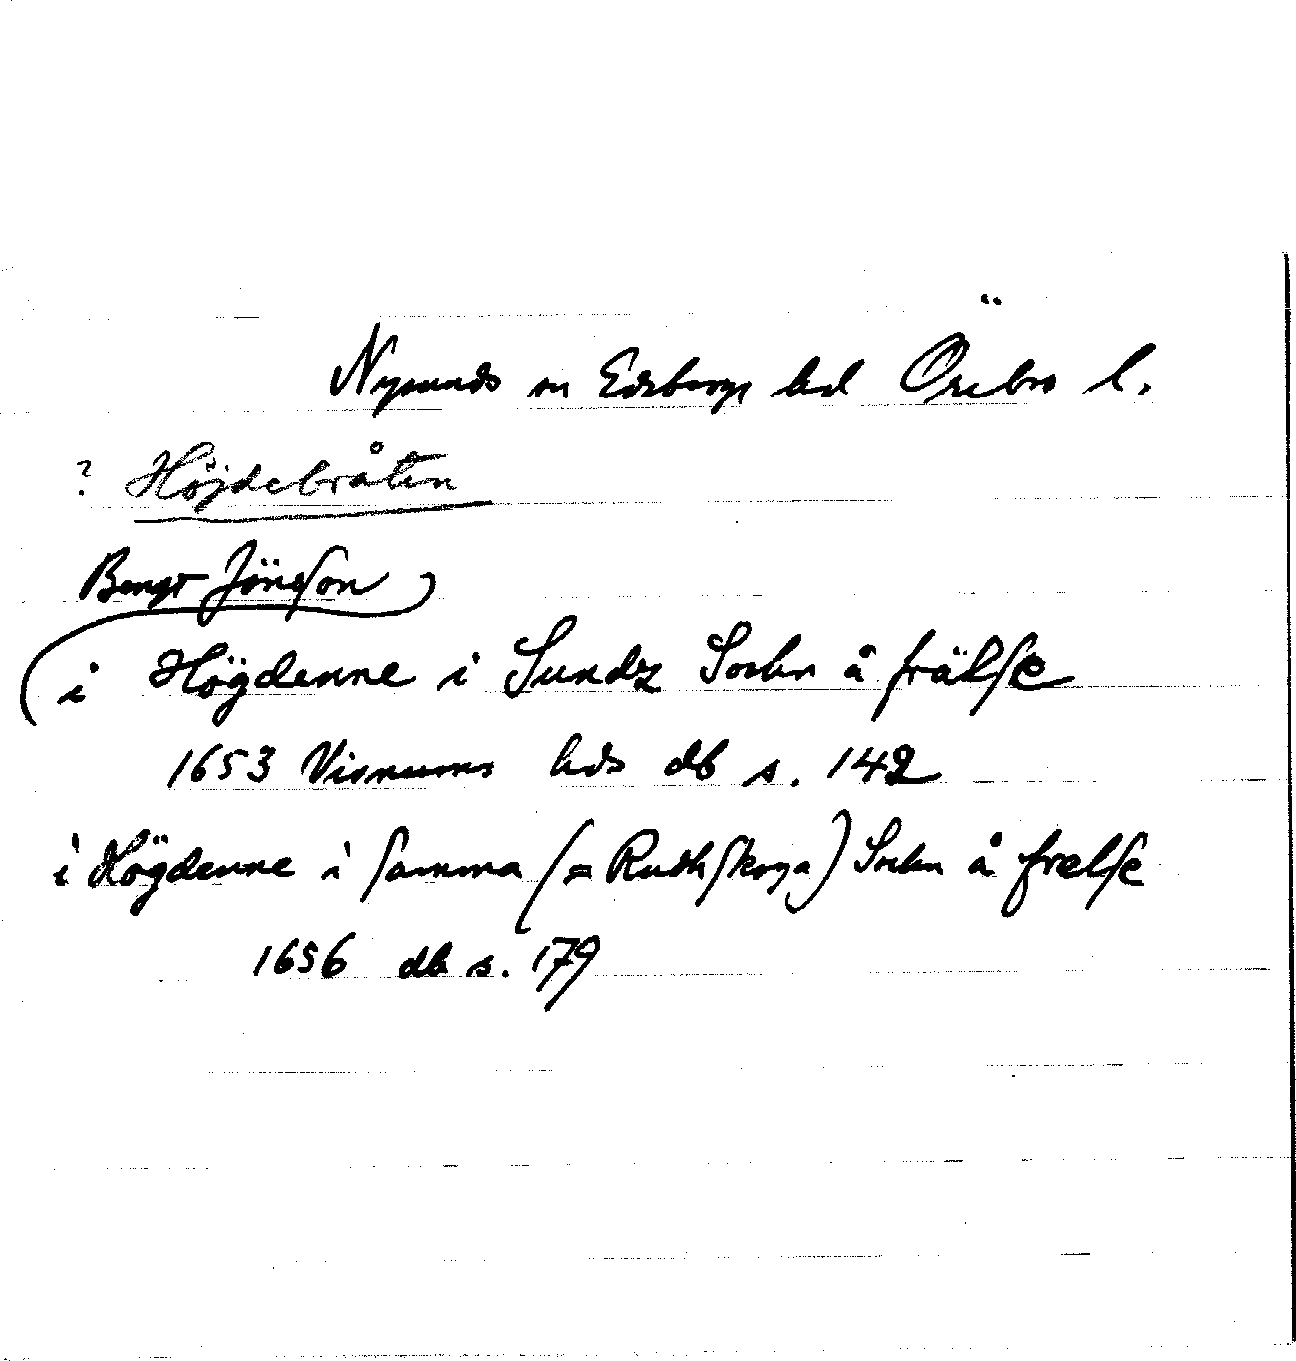 Nysunds sn Edsbergs hd Örebro l.
? Höjdebråten
Bengt Jönsson
i Högdenne i Sundz Sochn å frälse
1653 Visnums hds db s. 142
i Högdenne i samma (= Rudhskoga) Sochn å frelse
1656 db s. 179